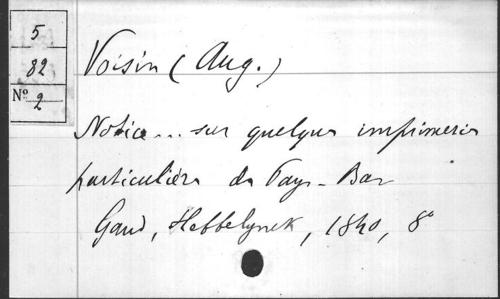 5
82
Nº 2
Voisin (Aug.)
Notice... sur quelques imprimeries
particulières des Pays-Bas
Gand, Hebbelynck, 1840, 8°